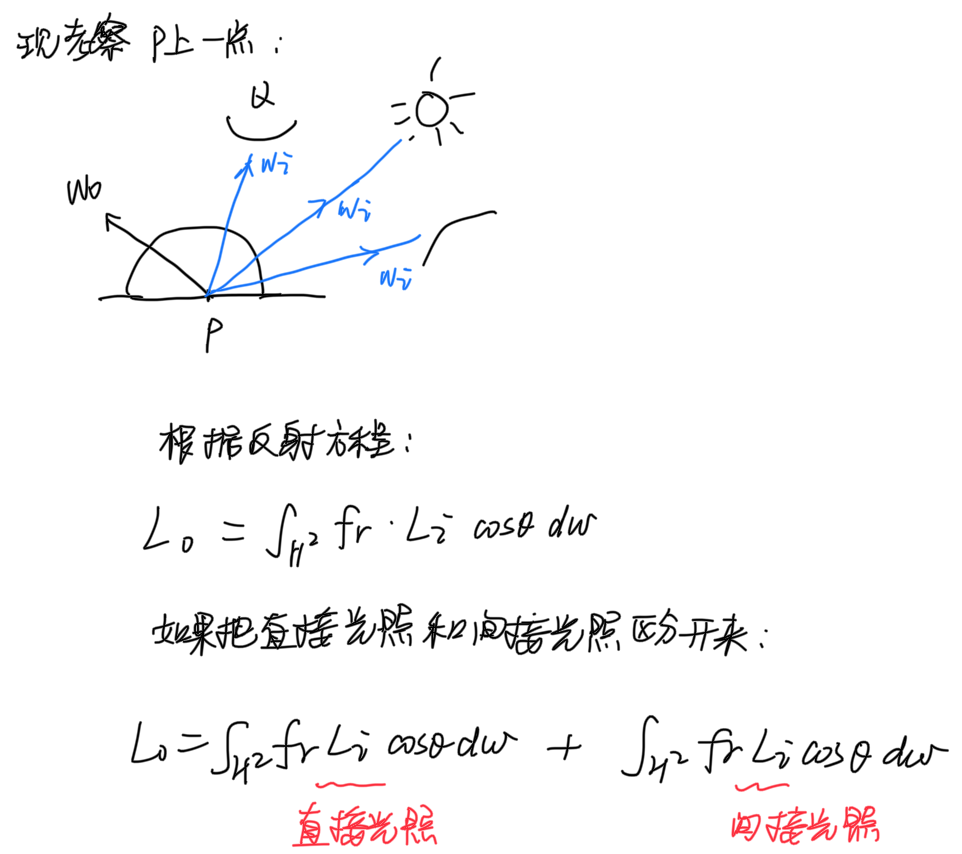 现考察 P上一点:
Q
wi
wo
wi
wi
P
根据反射方程:
Lo = ∫H² fr · Li cosθ dw
如果把直接光照和间接光照区分开来:
Lo = ∫H² fr Li cosθ dw + ∫H² fr Li cosθ dw
直接光照 间接光照